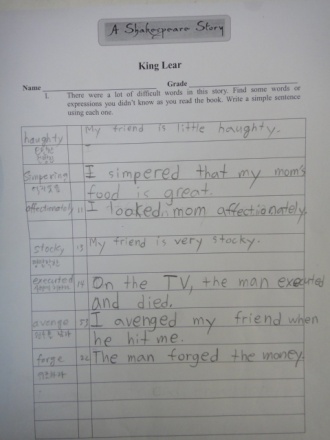 A Shakespeare Story
King Lear
Name Grade
1. There were a lot of difficult words in this story. Find some words or
expressions you didn't know as you read the book. Write a simple sentence
using each one.
haughty My friend is little haughty.
Simpering I simpered that my mom's
food is great.
affectionately 11 I looked mom affectionately.
stocky 13 My friend is very stocky.
executed 14 On the TV, the man executed
and died.
avenge I avenged my friend when
he hit me.
forge 22 The man forged the money.